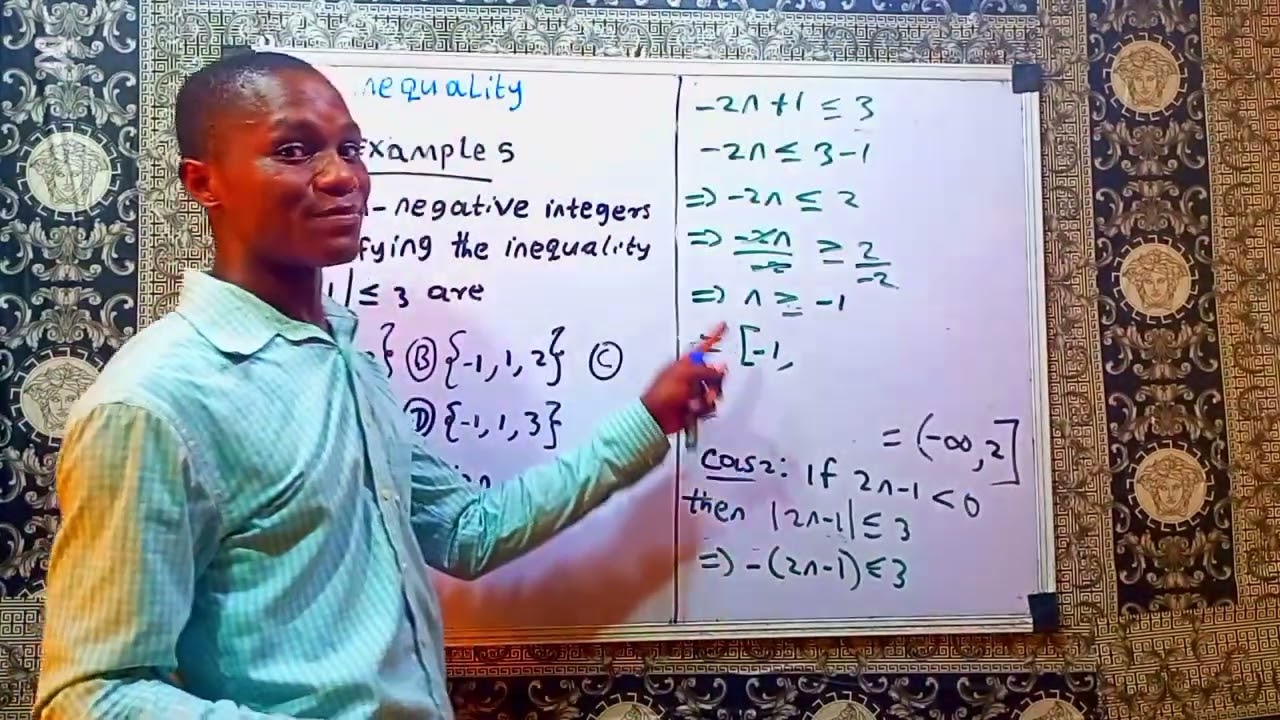 nequality
xample 5
n-negative integers
fying the inequality
1|≤ 3 are
} Ⓑ {-1, 1, 2} Ⓒ
Ⓓ {-1, 1, 3}
-2n +1 ≤ 3
-2n ≤ 3-1
=> -2n ≤ 2
=> -2n/-2 ≥ 2/-2
=> n ≥ -1
= [-1,
= (-∞, 2]
Cas2: If 2n-1 < 0
then |2n-1| ≤ 3
=> -(2n-1) ≤ 3